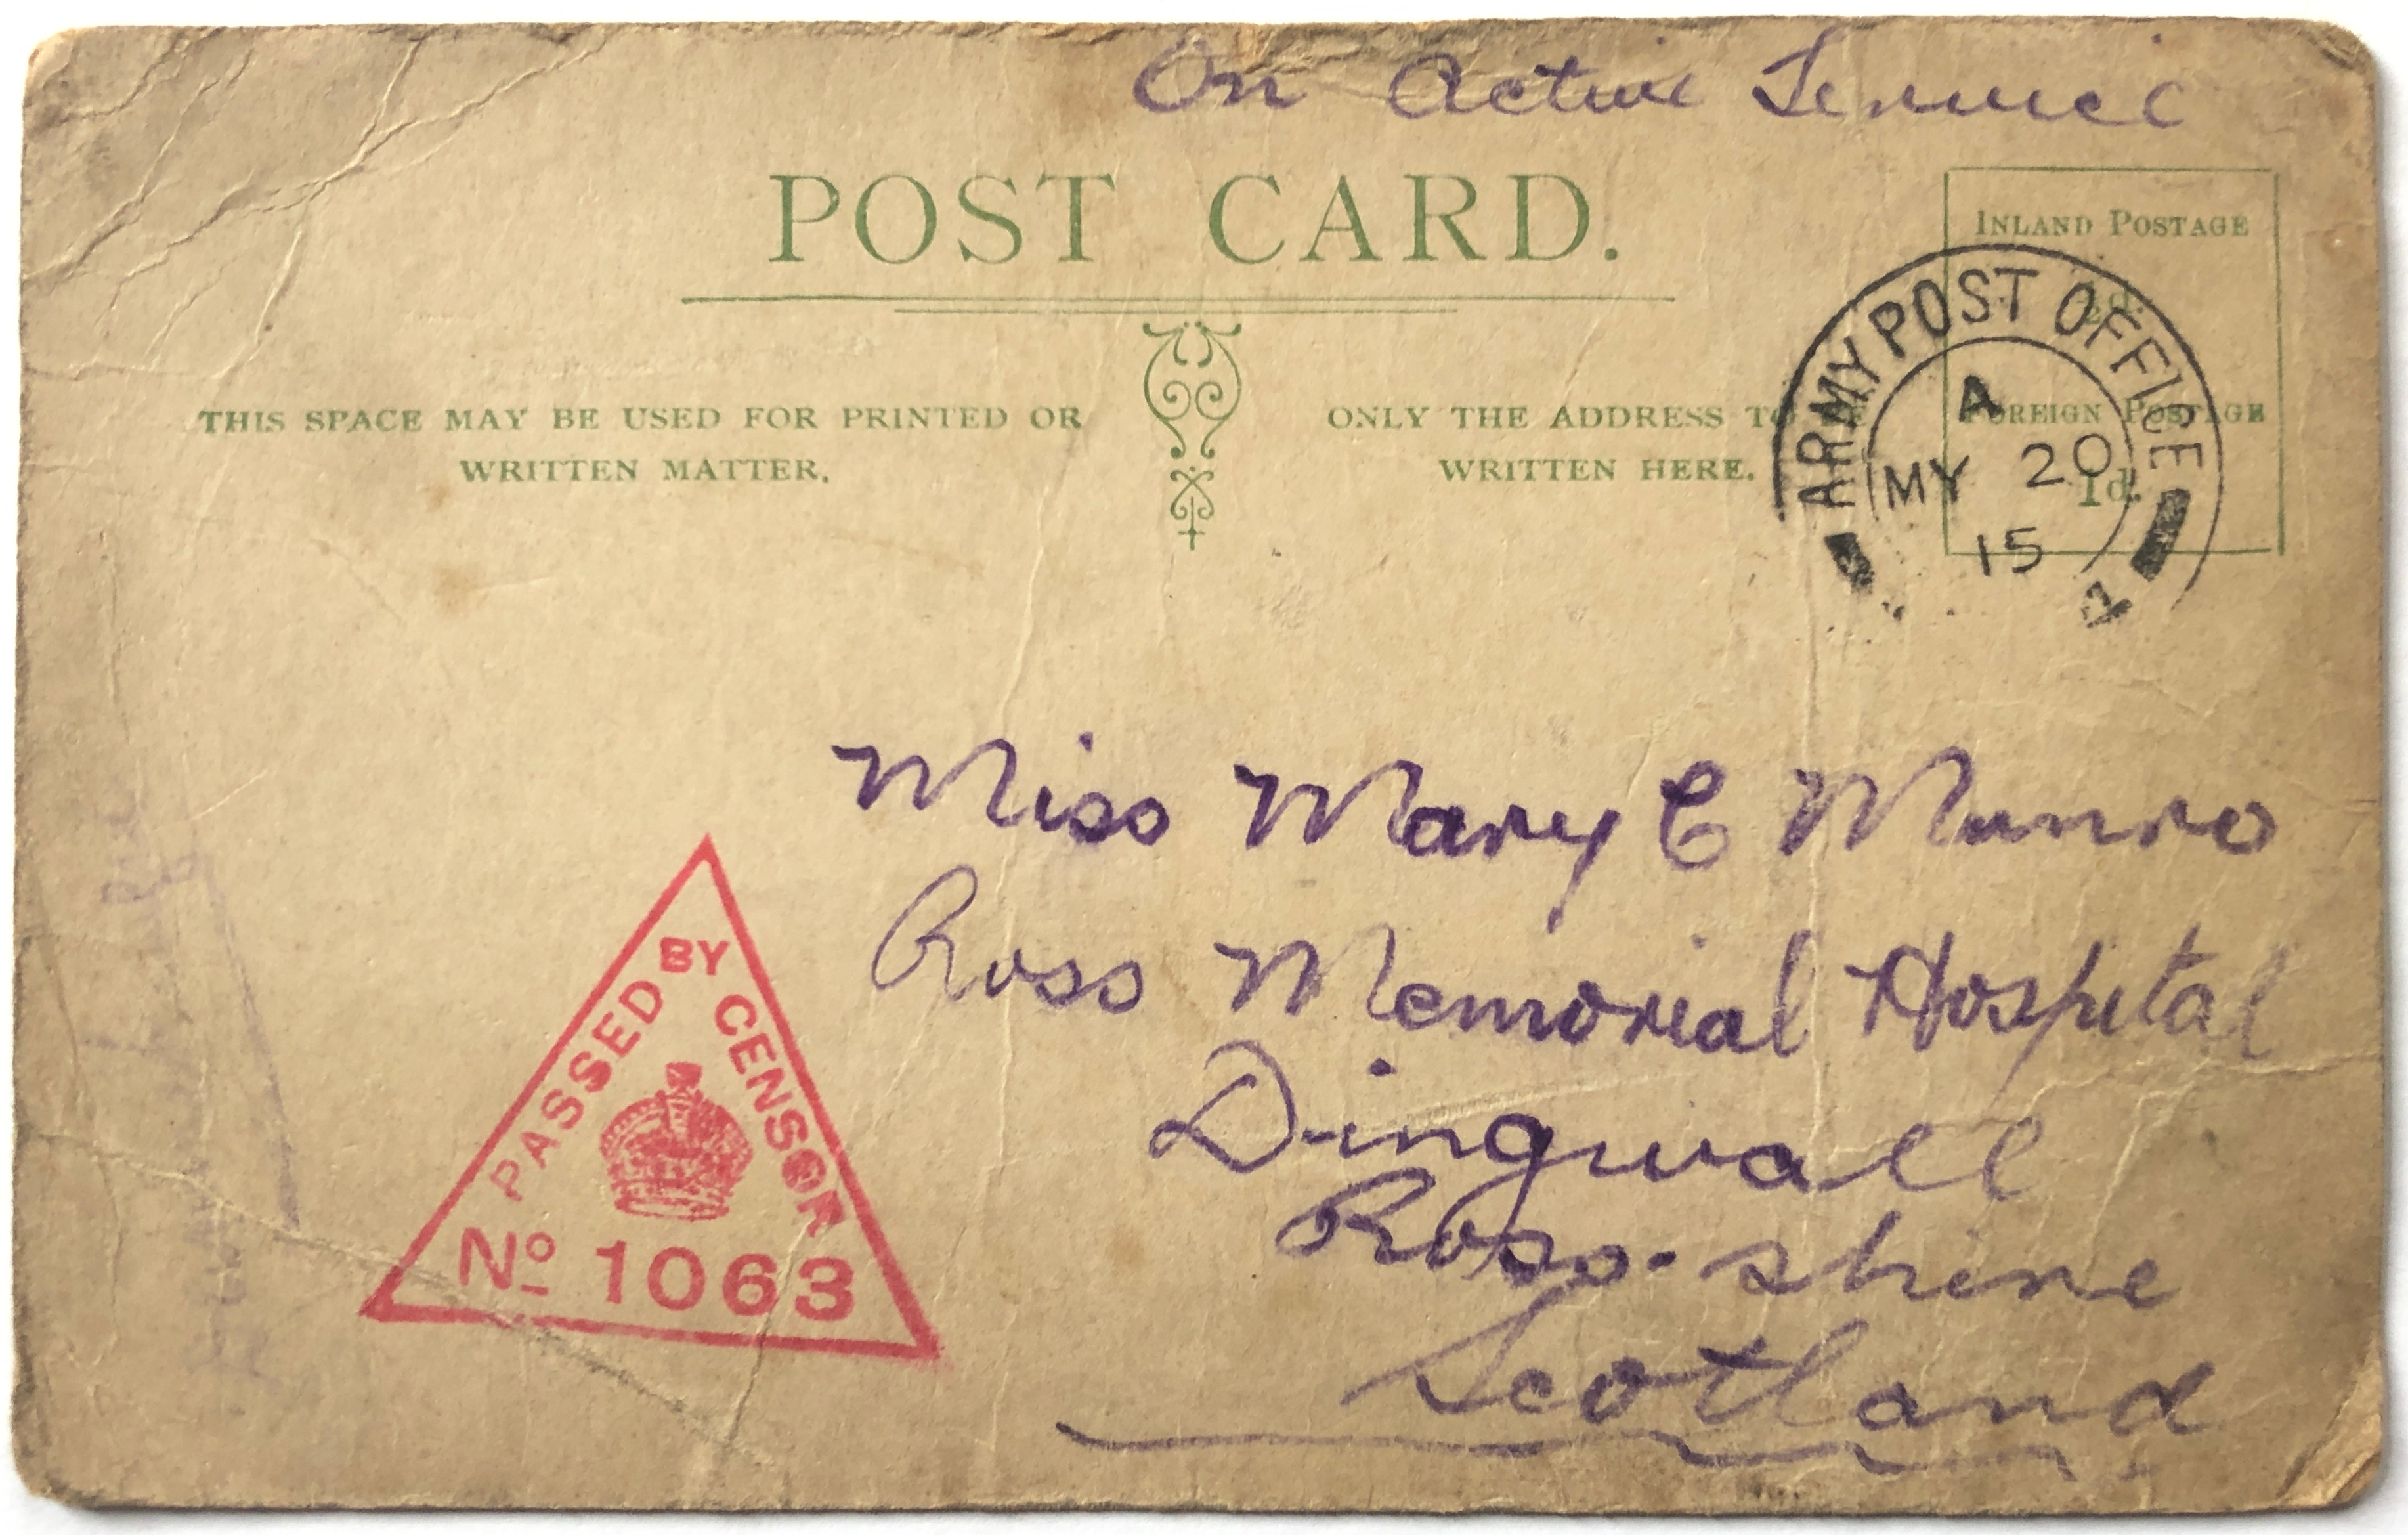 On Active Service
POST CARD.
INLAND POSTAGE
½d.
FOREIGN POSTAGE
1d.
THIS SPACE MAY BE USED FOR PRINTED OR
WRITTEN MATTER.
ONLY THE ADDRESS TO BE
WRITTEN HERE.
ARMY POST OFFICE
A
MY 20
15
Miss Mary C Munro
Ross Memorial Hospital
Dingwall
Ross-shire
Scotland
PASSED BY CENSOR
No 1063